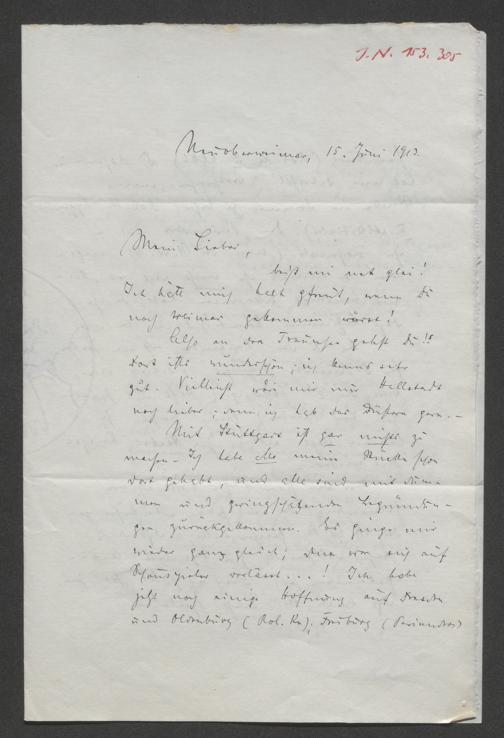 J.N. 153.305
Neuoberweimar, 15. Juni 1913.
Mein Lieber,
beiß mi net glei!
Ich hätt mich halt gfreut, wenn Du
nach Weimar gekommen wärst!
Also an den Traunsee gehst Du!!
Dort ists wunderschön; ich kenns sehr
gut. Vielleicht wär mir nur Hallstadt
noch lieber; denn ich hab das Düstere gern. –
Mit Stuttgart ist gar nichts zu
machen – Ich habe alle meine Stücke schon
dort gehabt, und alle sind mit dum-
men und geringschätzenden Begründun-
gen zurückgekommen. Es ginge mir
wieder ganz gleich; denn wer sich auf
Schauspieler verlässt...! Ich habe
jetzt noch einige Hoffnung auf Dresden
und Oldenburg (Rol. Ra), Freiburg (Periandros)